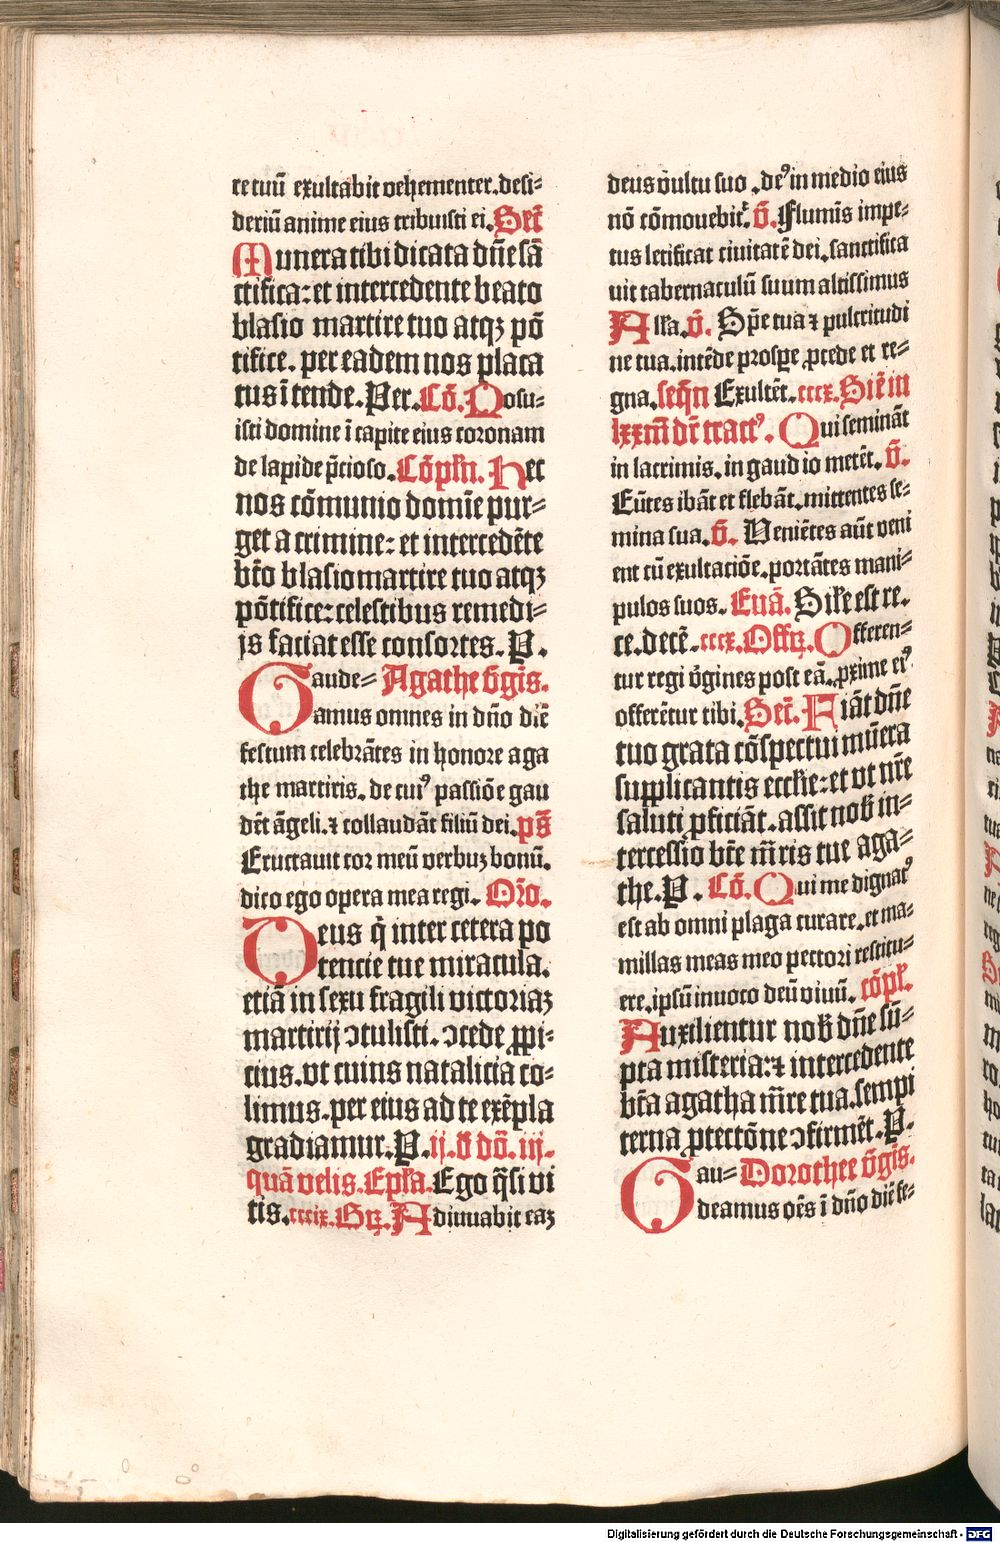 re tuū exultabit vehementer.desi-
deriū anime eius tribuisti ei.Secr̄
Munera tibi dicata dn̄e sā
ctifica: et intercedente beato
blasio martire tuo atqꝫ pō
tifice. per eadem nos placa
tus ītende. Per. Cō. Posu-
isti domine ī capite eius coronam
de lapide p̄cioso. Cōpln̄. Hec
nos cōmunio domīe pur-
get a crimine: et intercedēte
bt̄o blasio martire tuo atqꝫ
pōtifice: celestibus remedi-
js faciat esse consortes. P.
Gaude- Agathe v̄gīs.
amus omnes in dn̄o diē
festum celebrātes in honore aga
the martiris. de cuiꝰ passiōe gau
dēt āgeli. ⁊ collaudāt filiū dei. ps̄
Eructauit cor meū verbuꝫ bonū.
dico ego opera mea regi. Or̄o.
Deus q̄ inter cetera po
tencie tue miracula.
etiā in sexu fragili victoriaꝫ
martirij ↄtulisti. ↄcede ꝓpi-
cius. vt cuius natalicia co-
limus. per eius ad te exēpla
gradiamur. P. ij. v̄ dō. iij.
quā velis. Epl̄a. Ego q̄si vi
tis. cccix. Gꝝ. Adiuuabit eaꝫ
deus v̄ultu suo . deꝰ in medio eius
nō cōmouebit᷑. v̄. Flumīs impe-
tus letificat ciuitatē dei. sanctifica
uit tabernaculū suum altissimus
All̄a. v̄. Sp̄e tua ⁊ pulcritudi
ne tua. intēde prospe ꝓcede et re-
gna. seqn̄ Exultēt. cccx. Siēin
lxxm̄ dr̄ tractꝰ. Qui semināt
in lacrimis. in gaudio metēt. v̄.
Eūtes ibāt et flebāt. mittentes se-
mina sua. v̄. Veniētes aūt veni
ent cū exultatiōe. portātes mani-
pulos suos. Euā. Sil̄e est re.
ce. decē. cccx. Offꝝ. Offeren-
tur regi v̄gines post eā. ꝓxime eiꝰ
offerētur tibi. Secr̄. Fiāt dn̄e
tuo grata cōspectui mūera
supplicantis eccl̄ie: et vt nr̄e
saluti ꝓficiāt. assit nob̄ in-
tercessio bt̄e m̄ris tue aga-
the. P. Cō. Qui me dignatꝰ
est ab omni plaga curare. et ma-
millas meas meo pectori restitu-
ere. ipsū inuoco deū viuū. cōpl̄.
Auxilientur nob̄ dn̄e sū-
pta misteria: ⁊ intercedente
bt̄a agatha m̄re tua. sempi
terna ꝓtectōne ↄfirmēt. P.
Gau- Dorothee v̄gīs.
deamus oēs ī dn̄o diē fe-
Digitalisierung gefördert durch die Deutsche Forschungsgemeinschaft - DFG